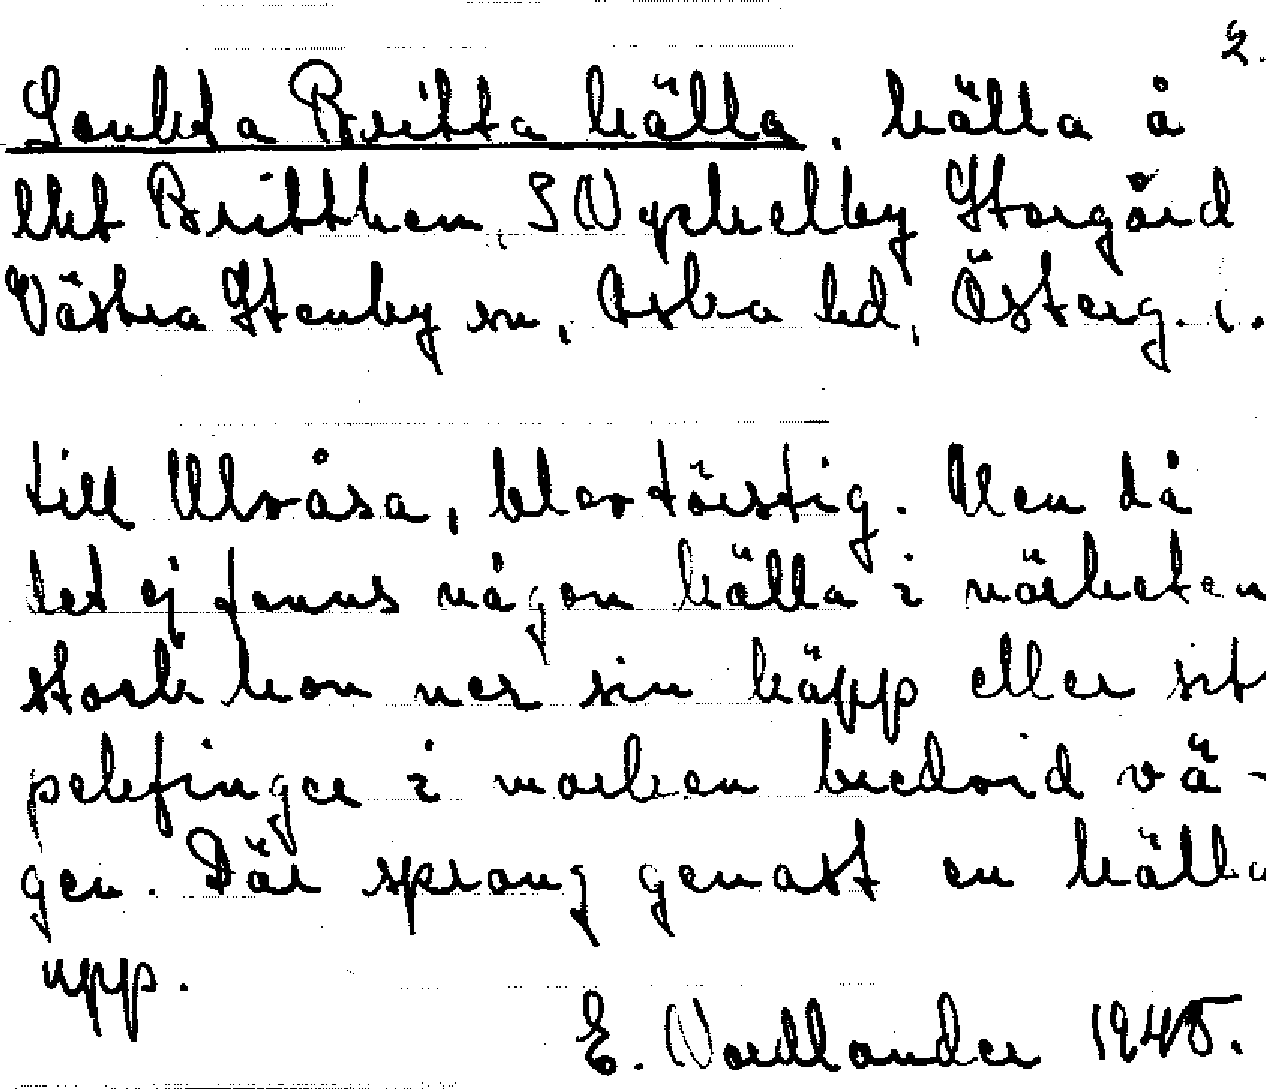 2.
Sankta Britta källa, källa å
lht Brittken, S Nyckelby Storgård
Västra Stenby sn, Aska hd, Österg. l.
till Ulvåsa, blev törstig. Men då
det ej fanns någon källa i närheten
stack hon ner sin käpp eller sitt
pekfinger i marken bredvid vä-
gen. Där sprang genast en källa
upp.
E. Nordlander 1945.